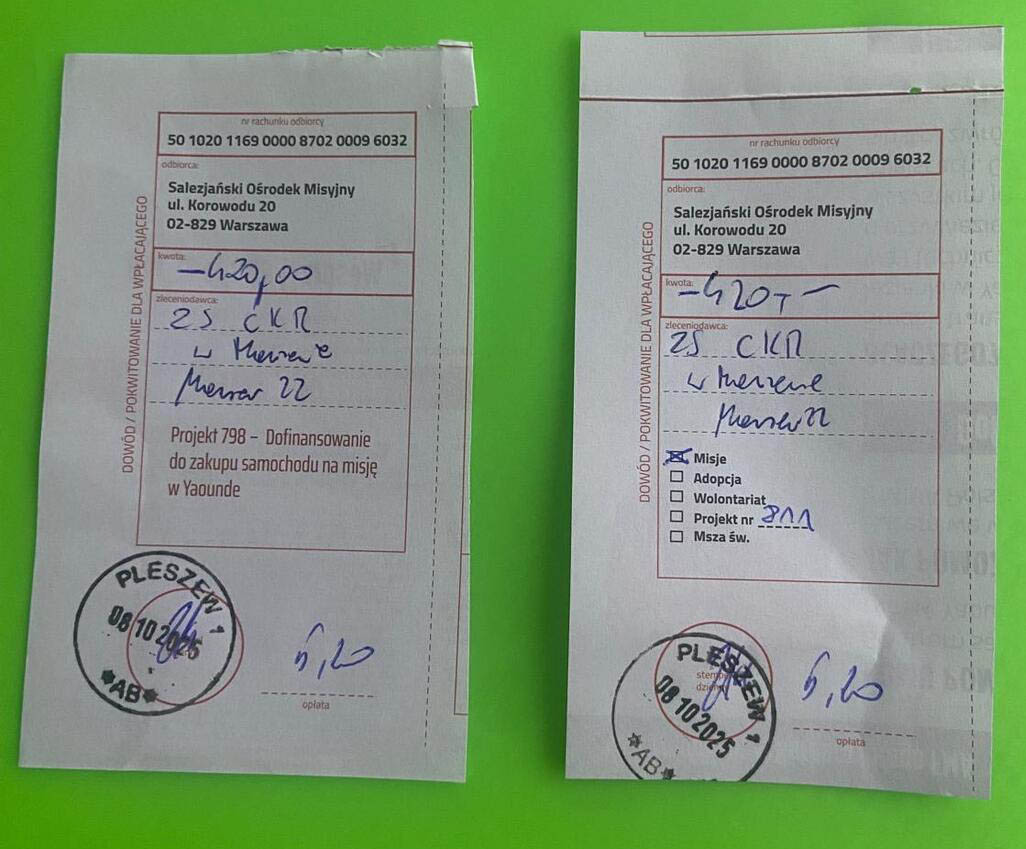 nr rachunku odbiorcy
50 1020 1169 0000 8702 0009 6032
odbiorca:
Salezjański Ośrodek Misyjny
ul. Korowodu 20
02-829 Warszawa
kwota:
-420,00
zleceniodawca:
ZS CKR
w Marszewie
Marszew 22
Projekt 798 – Dofinansowanie
do zakupu samochodu na misję
w Yaounde
DOWÓD / POKWITOWANIE DLA WPŁACAJĄCEGO
PLESZEW 1
08 10 2025
*AB*
5,20
opłata
nr rachunku odbiorcy
50 1020 1169 0000 8702 0009 6032
odbiorca:
Salezjański Ośrodek Misyjny
ul. Korowodu 20
02-829 Warszawa
kwota:
-420,-
zleceniodawca:
ZS CKR
w Marszewie
Marszew 22
Misje
Adopcja
Wolontariat
Projekt nr 811
Msza św.
DOWÓD / POKWITOWANIE DLA WPŁACAJĄCEGO
PLESZEW 1
08 10 2025
*AB*
5,20
opłata